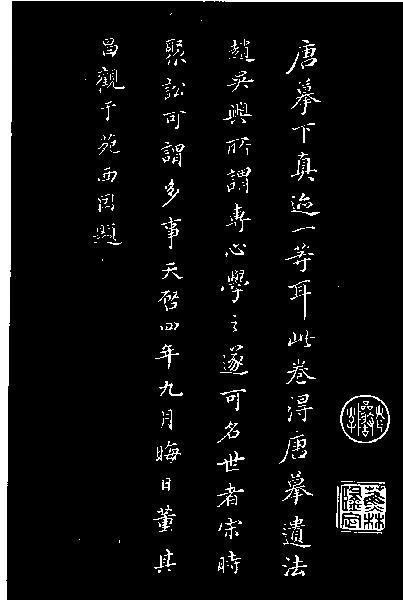 唐摹下真迹一等耳此卷得唐摹遺法
趙吳興所謂專心學之遂可名世者宋時
聚訟可謂多事天啓四年九月晦日董其
昌觀于苑西因題